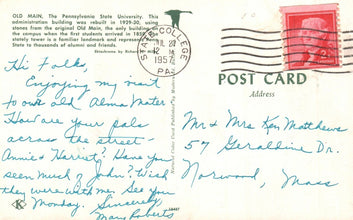 OLD MAIN, The Pennsylvania State University. This
administration building was rebuilt in 1929-30, using
stones from the original Old Main, the only building on
the campus when the first students arrived in 1859. Its
stately tower is a familiar landmark and represents Penn
State to thousands of alumni and friends.
Ektachrome by Richard
STATE COLLEGE
JUL 27
12 M
1957
PA.
POST CARD
Address
Hi Folks,
Enjoying my visit
to our old Alma Mater
How are your pals
across the street -
Annie & Harriet? Have you
seen much of John? Wish
they were with me. See you
Monday. Sincerely
Mary Roberts
Mr & Mrs Ken Matthews
57 Geraldine Dr.
Norwood, Mass
Natural Color Post Card
K